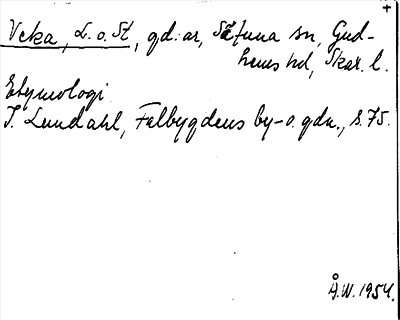 Veka, L. o. St, gd:ar, Sätuna sn, Gud-
hems hd, Skar. l.
Etymologi
I. Lundahl, Falbygdens by- o. gdn., s. 75.
Å.W. 1954.